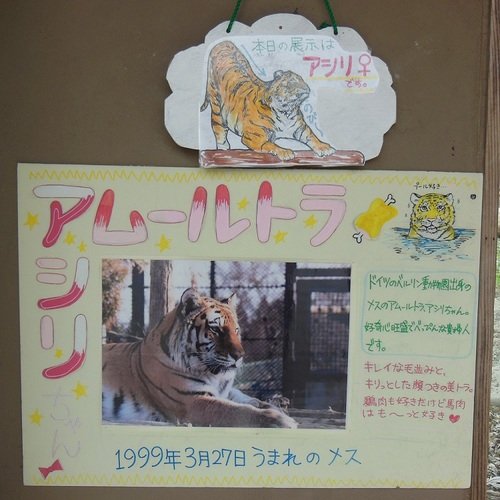 本日の展示は
アシリ♀
です。
のび～
アムールトラ
アシリちゃん
プール好き
ドイツのベルリン動物園出身の
メスのアムールトラ、アシリちゃん。
好奇心旺盛でべっぴんな貴婦人
です。
キレイな毛並みと、
キリッとした顔つきの美トラ。
鶏肉も好きだけど馬肉
はも～っと好き♥
1999年3月27日うまれのメス